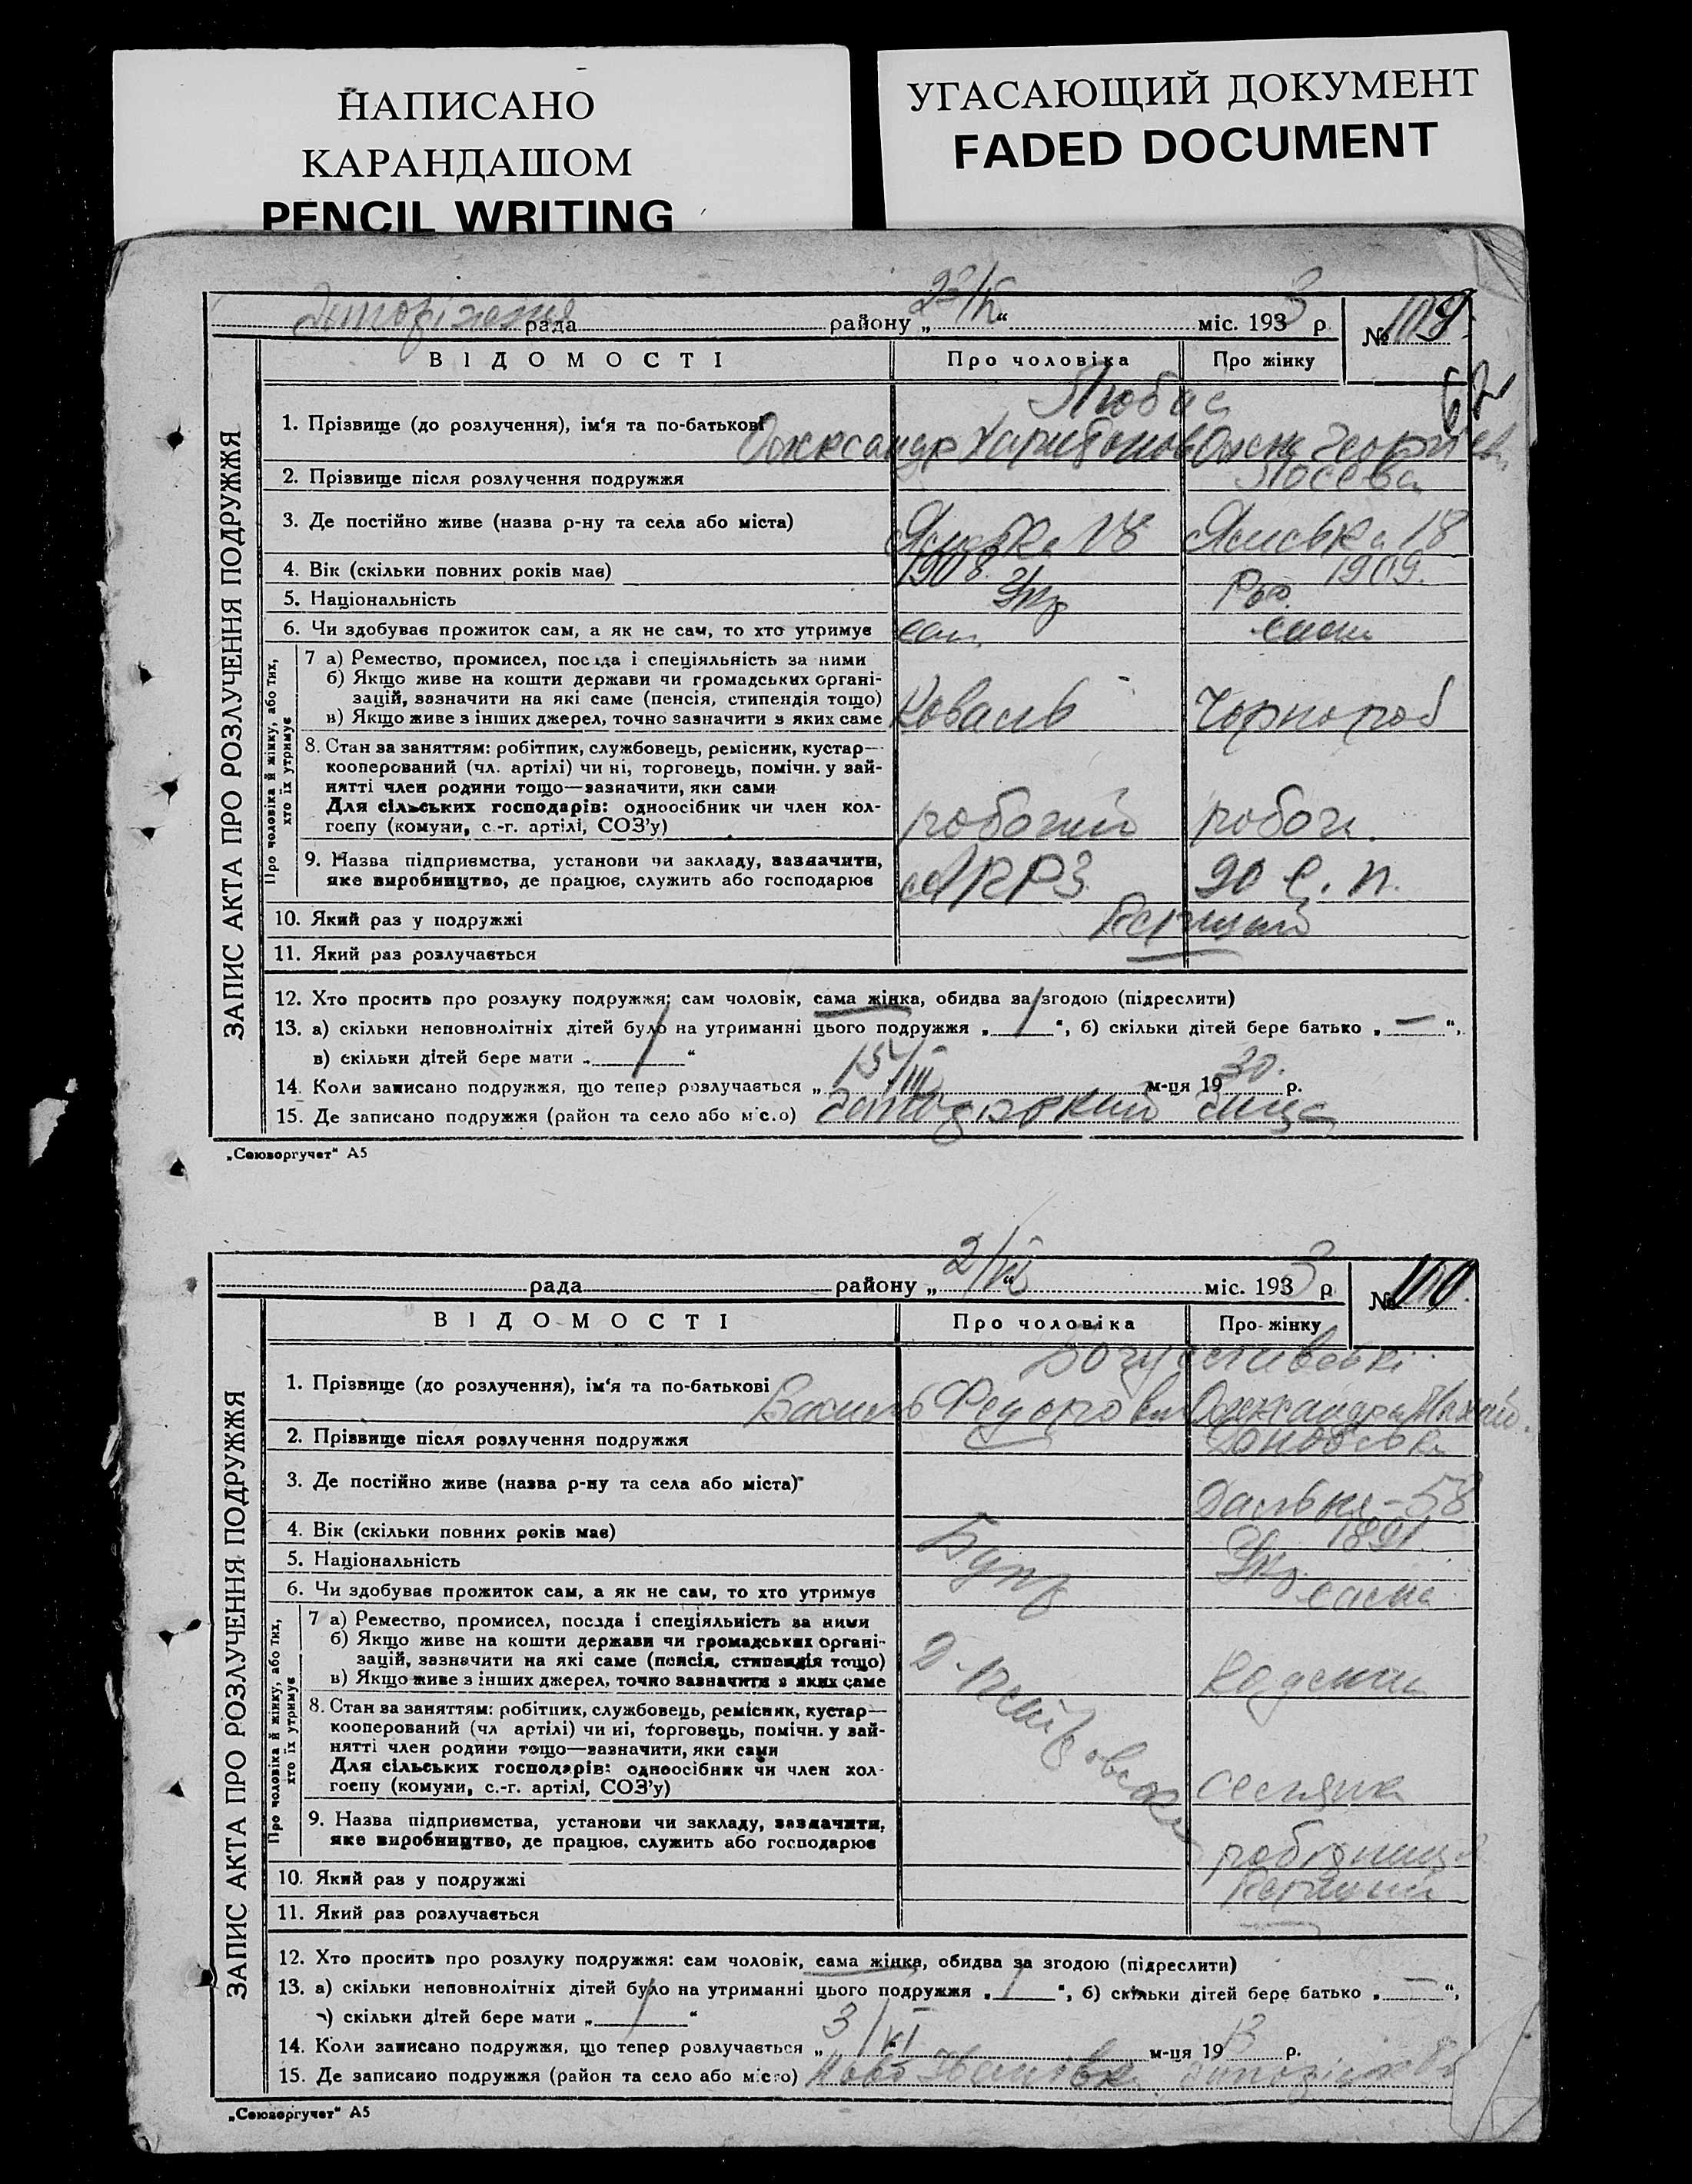 НАПИСАНО
КАРАНДАШОМ
PENCIL WRITING
УГАСАЮЩИЙ ДОКУМЕНТ
FADED DOCUMENT
рада района „ “ міс. 1933 р. № 109
62
ЗАПИС АКТА ПРО РОЗЛУЧЕННЯ ПОДРУЖЖЯ
ВІДОМОСТІ Про чоловіка Про жінку
1. Прізвище (до розлучення), ім'я та по-батькові
Олександр Харитонов
2. Прізвище після розлучення подружжя Лосєва
3. Де постійно живе (назва р-ну та села або міста) 18 18
4. Вік (скільки повних років має) 1908 1909
5. Національність Укр Рос.
6. Чи здобуває прожиток сам, а як не сам, то хто утримує сам сама
Про чоловіка й жінку, або тих, хто їх утримує
7 а) Ремество, промисел, посада і спеціяльність за ними
б) Якщо живе на кошти держави чи громадських органі-
зацій, зазначити на які саме (пенсія, стипендія тощо)
в) Якщо живе з інших джерел, точно зазначити з яких саме Коваль Чорнороб
8. Стан за заняттям: робітник, службовець, ремісник, кустар—
кооперований (чл. артілі) чи ні, торговець, помічн. у зай-
нятті член родини тощо—зазначити, яки сами
Для сільських господарів: одноосібник чи член кол-
госпу (комуни, с.-г. артілі, СОЗ'у) робочий робоч.
9. Назва підприємства, установи чи закладу, зазначити,
яке виробництво, де працює, служить або господарює
10. Який раз у подружжі Перший
11. Який раз розлучається
12. Хто просить про розлуку подружжя: сам чоловік, сама жінка, обидва за згодою (підреслити)
13. а) скільки неповнолітніх дітей було на утриманні цього подружжя „ 1 “, б) скільки дітей бере батько „ — “,
в) скільки дітей бере мати „ 1 “
14. Коли записано подружжя, що тепер розлучається „ 15/III “ м-ця 1930. р.
15. Де записано подружжя (район та село або місто)
„Союзоргучет“ А5
рада району „ 2/ “ міс. 1933 р. №
ЗАПИС АКТА ПРО РОЗЛУЧЕННЯ ПОДРУЖЖЯ
ВІДОМОСТІ Про чоловіка Про жінку
1. Прізвище (до розлучення), ім'я та по-батькові
Василь Федорович Олександра Михай.
2. Прізвище після розлучення подружжя
3. Де постійно живе (назва р-ну та села або міста) Дальня - 58
4. Вік (скільки повних років має) 1891
5. Національність Укр.
6. Чи здобуває прожиток сам, а як не сам, то хто утримує сама
Про чоловіка й жінку, або тих, хто їх утримує
7 а) Ремество, промисел, посада і спеціяльність за ними
б) Якщо живе на кошти держави чи громадських органі-
зацій, зазначити на які саме (пенсія, стипендія тощо)
в) Якщо живе з інших джерел, точно зазначити з яких саме
8. Стан за заняттям: робітник, службовець, ремісник, кустар—
кооперований (чл. артілі) чи ні, торговець, помічн. у зай-
нятті член родини тощо—зазначити, яки сами
Для сільських господарів: одноосібник чи член кол-
госпу (комуни, с.-г. артілі, СОЗ'у) селянка
9. Назва підприємства, установи чи закладу, зазначити,
яке виробництво, де працює, служить або господарює
10. Який раз у подружжі Перший
11. Який раз розлучається
12. Хто просить про розлуку подружжя: сам чоловік, сама жінка, обидва за згодою (підреслити)
13. а) скільки неповнолітніх дітей було на утриманні цього подружжя „ 1 “, б) скільки дітей бере батько „ — “,
в) скільки дітей бере мати „ 1 “
14. Коли записано подружжя, що тепер розлучається „ 3/VI “ м-ця 1913 р.
15. Де записано подружжя (район та село або місто) Ново Іванівка
„Союзоргучет“ А5